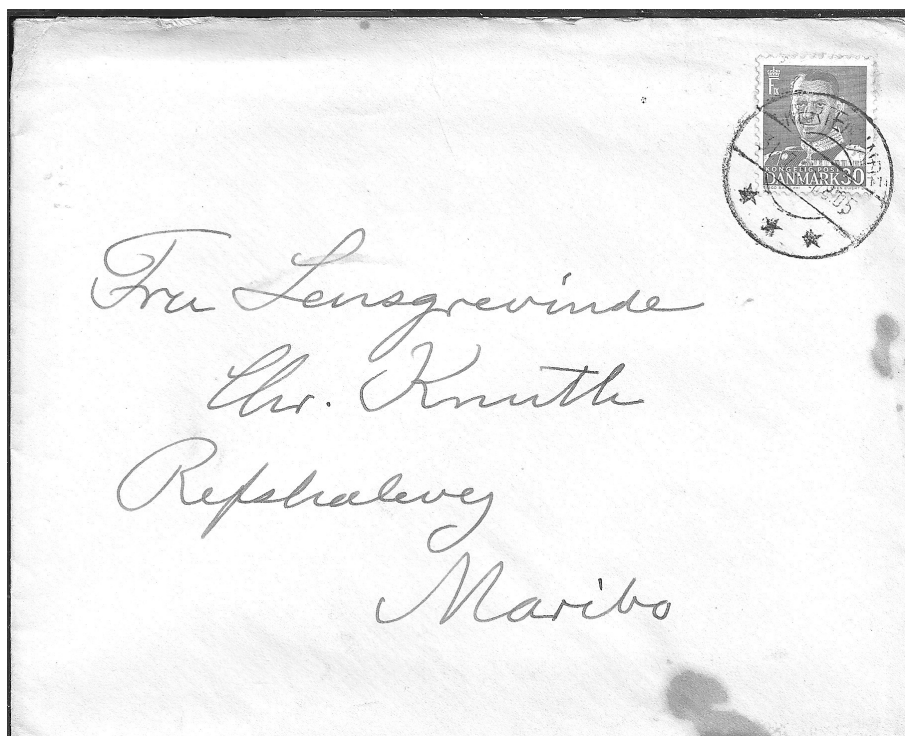 KONGELIG POST
DANMARK 30
Fru Lensgrevinde
Chr. Knuth
Refshalevej
Maribo